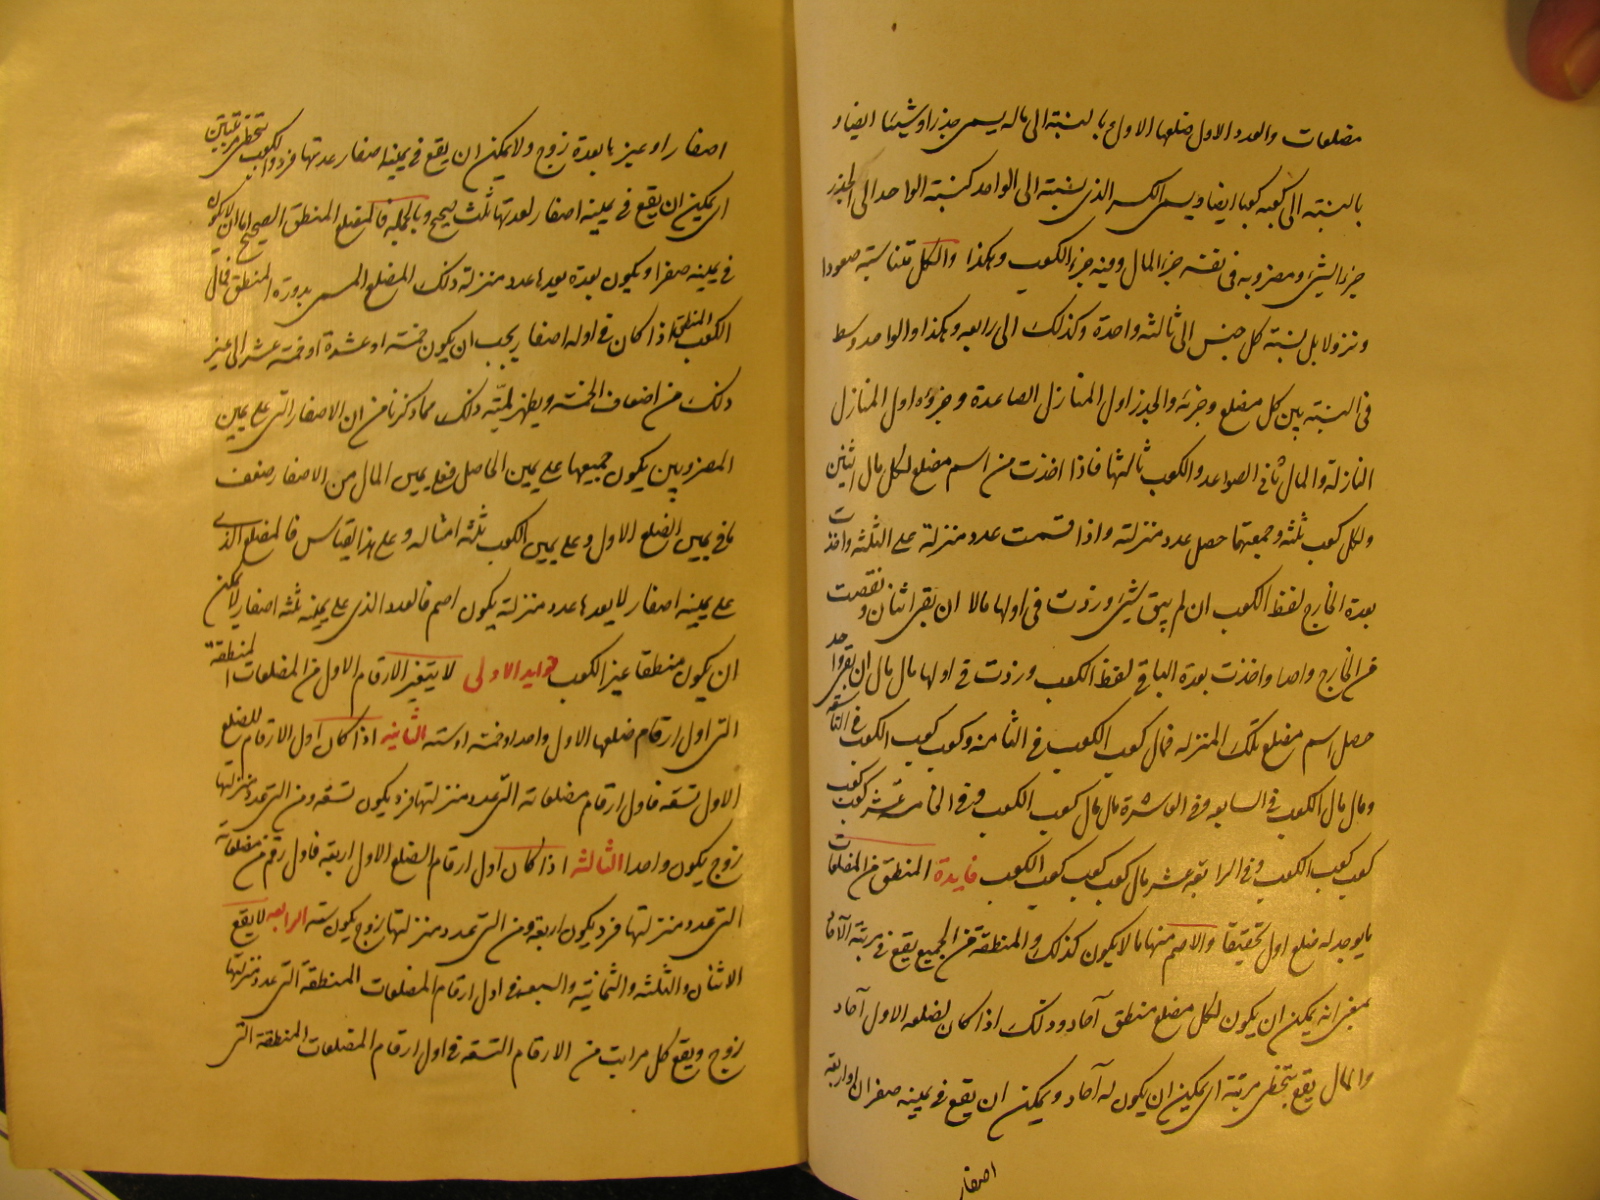 مضلعات والعدد الاول ضلعها الاول بالنسبة الى ماله يسمى جذرا وشيئا ايضا و
بالنسبة الى كعبه كعبا ايضا ويسمى الكسر الذي نسبته الى الواحد كنسبة الواحد الى الجذر
جزء الشئ ومضروبه في نفسه جزء المال وفيه جزء الكعب وهكذا والكل متناسبة صعودا
ونزولا بل نسبة كل جنس الى ثالثه واحدة وكذلك الى رابعه وهكذا والواحد وسط
في النسبة بين كل مضلع وجزئه والجذر اول المنازل الصاعدة وجزؤه اول المنازل
النازلة والمال ثاني الصواعد والكعب ثالثها فاذا اخذت من اسم مضلع لكل مال اثنين
ولكل كعب ثلثة وجمعتها حصل عدد منزلته واذا قسمت عدد منزلة على الثلثة واخذت
بعدة الخارج لفظ الكعب ان لم يبق شئ وزدت في اولها مالا ان بقى اثنان و نقصت
من الخارج واحدا واخذت بعدة الباقي لفظ الكعب وزدت في اولها مال مال ان بقى واحد
حصل اسم مضلع تلك المنزلة فمال كعب الكعب في الثامنة وكعب كعب الكعب في التاسعة
ومال مال الكعب في السابعة وفي العاشرة مال مال كعب الكعب وفي الخامسة عشر كعب كعب
كعب كعب الكعب وفي الرابعة عشر مال كعب كعب كعب الكعب فايدة المنطق من المضلعات
ما يوجد له ضلع اول تحقيقا والاصم منها ما لا يكون كذلك والمنطقة من الجميع يقع في مرتبة الآحاد
بمعنى انه يمكن ان يكون لكل مضلع منطق آحاد وذلك اذا كان لضلعه الاول آحاد
والمال يقع بتخطى مرتبة اى يمكن ان يكون له آحاد ويمكن ان يقع في يمينه صفران او اربعة
اصفار
اصفار او غير ما بعدة زوج ولا يمكن ان يقع في يمينه اصفار عدتها فرد والكعب بتخطى مرتبتين
اى يمكن ان يقع في يمينه اصفار لعدتها ثلث صحيح وبالجملة فالمضلع المنطق الصحيح اما ان لا يكون
في يمينه صفر او يكون بعدة يعدها عدد منزلة ذلك المضلع المسمى بدوره المنطق فمال
الكعب المنطق اذا كان في اوله اصفار يجب ان يكون خمسة او عشرة او خمسة عشر الى غير
ذلك من اضعاف الخمسة ويظهر لميّة ذلك مما ذكرنا من ان الاصفار التي على يمين
المضروبين يكون جميعها على يمين الحاصل فعلى يمين المال من الاصفار ضعف
ما في يمين الضلع الاول وعلى يمين الكعب ثلثة امثاله وعلى هذا القياس فالمضلع الذى
على يمينه اصفار لا يعدها عدد منزلته يكون اصم فالعدد الذى على يمينه ثلثة اصفار لا يمكن
ان يكون منطقا غير الكعب فوايد الاولى لا يتغير الارقام الاول من المضلعات المنطقة
التى اول ارقام ضلعها الاول واحد او خمسة او ستة الثانية اذا كان اول الارقام للضلع
الاول تسعة فاول ارقام مضلعاته التى عدد منزلتها فرد يكون تسعة ومن التى عدد منزلتها
زوج يكون واحدا الثالثة اذا كان اول ارقام الضلع الاول اربعة فاول رقم من مضلعاته
التى عدد منزلتها فرد يكون اربعة ومن التى عدد منزلتها زوج يكون ستة الرابعة لا يقع
الاثنان والثلثة والثمانية والسبعة في اول ارقام المضلعات المنطقة التى عدد منزلتها
زوج ويقع كل مراتب من الارقام التسعة في اول ارقام المضلعات المنطقة التى